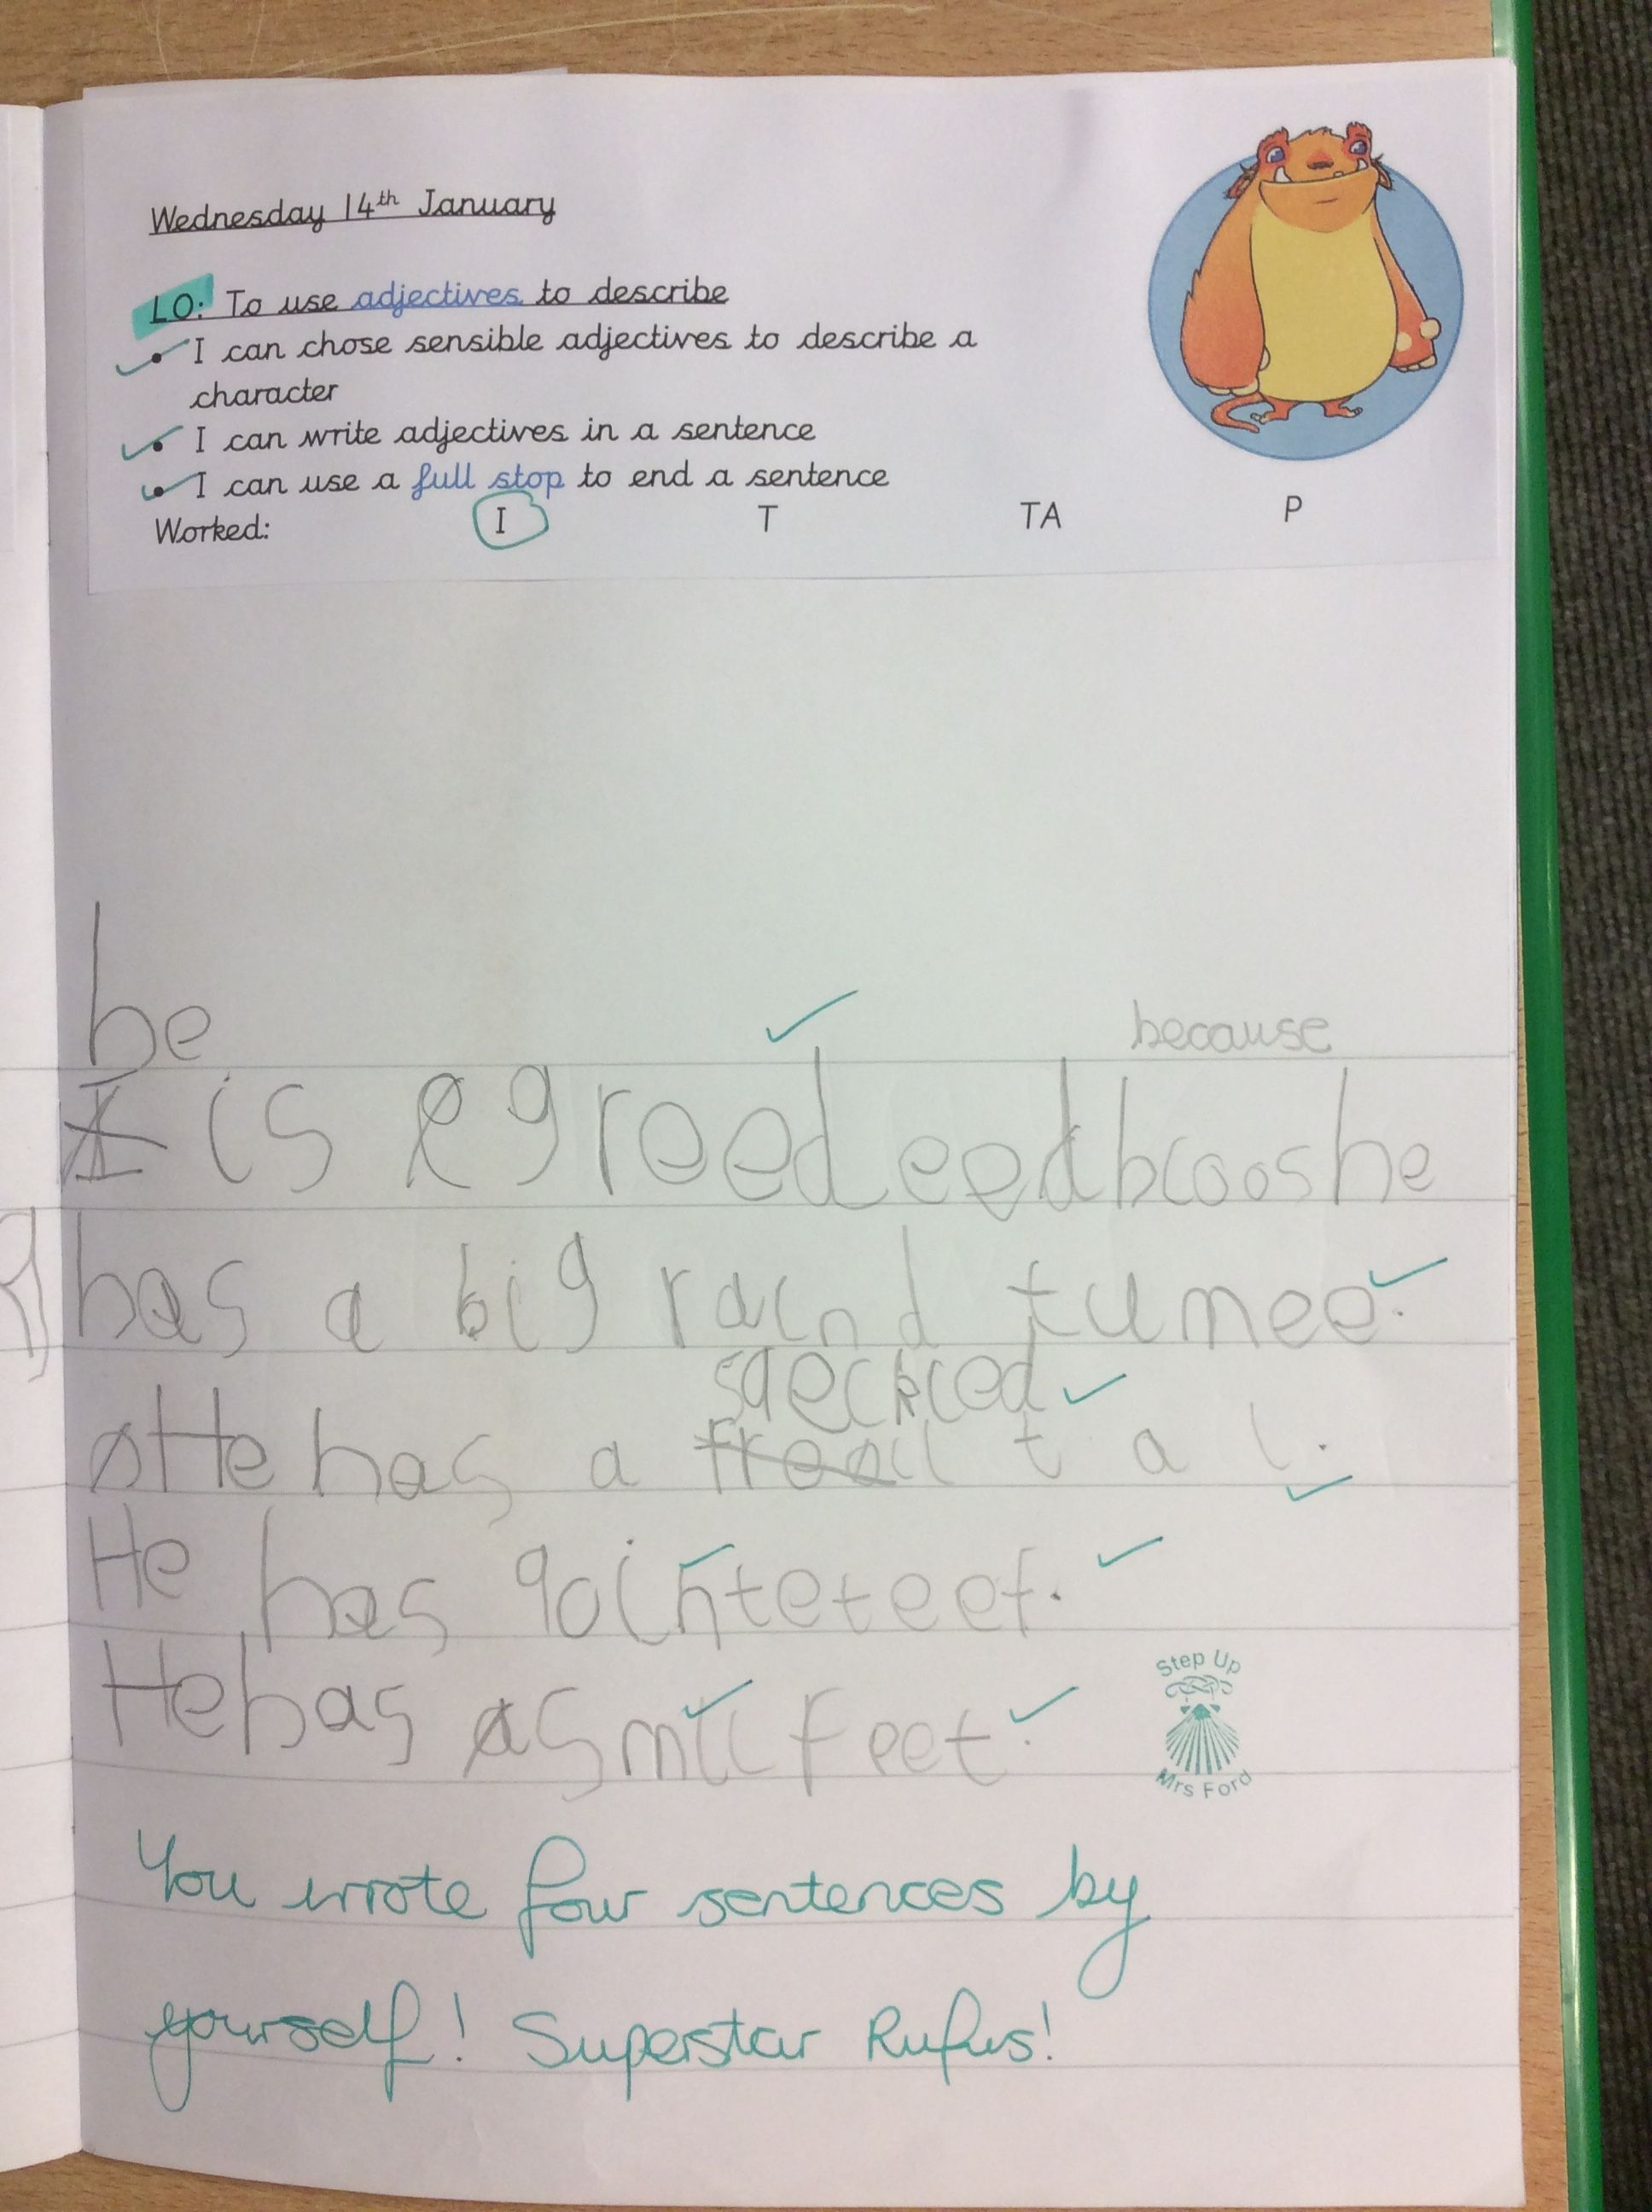 Wednesday 14th January
LO: To use adjectives to describe
• I can chose sensible adjectives to describe a
character
• I can write adjectives in a sentence
• I can use a full stop to end a sentence
Worked: I T TA P
he
because
I is greedeeed bcoos he
has a big raind tumee.
speckled
He has a t a l.
He has pointeteet.
He has a smll feet.
Step Up
Mrs Ford
You wrote four sentences by
yourself! Superstar Rufus!